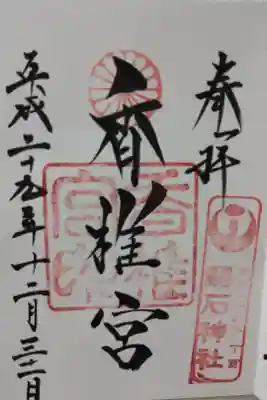 奉拝
香椎宮
平成二十九年十二月三十一日
石神社